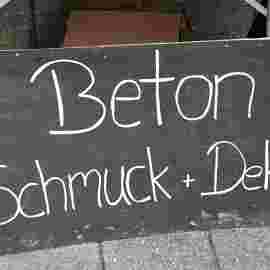 Beton
Schmuck + Dek